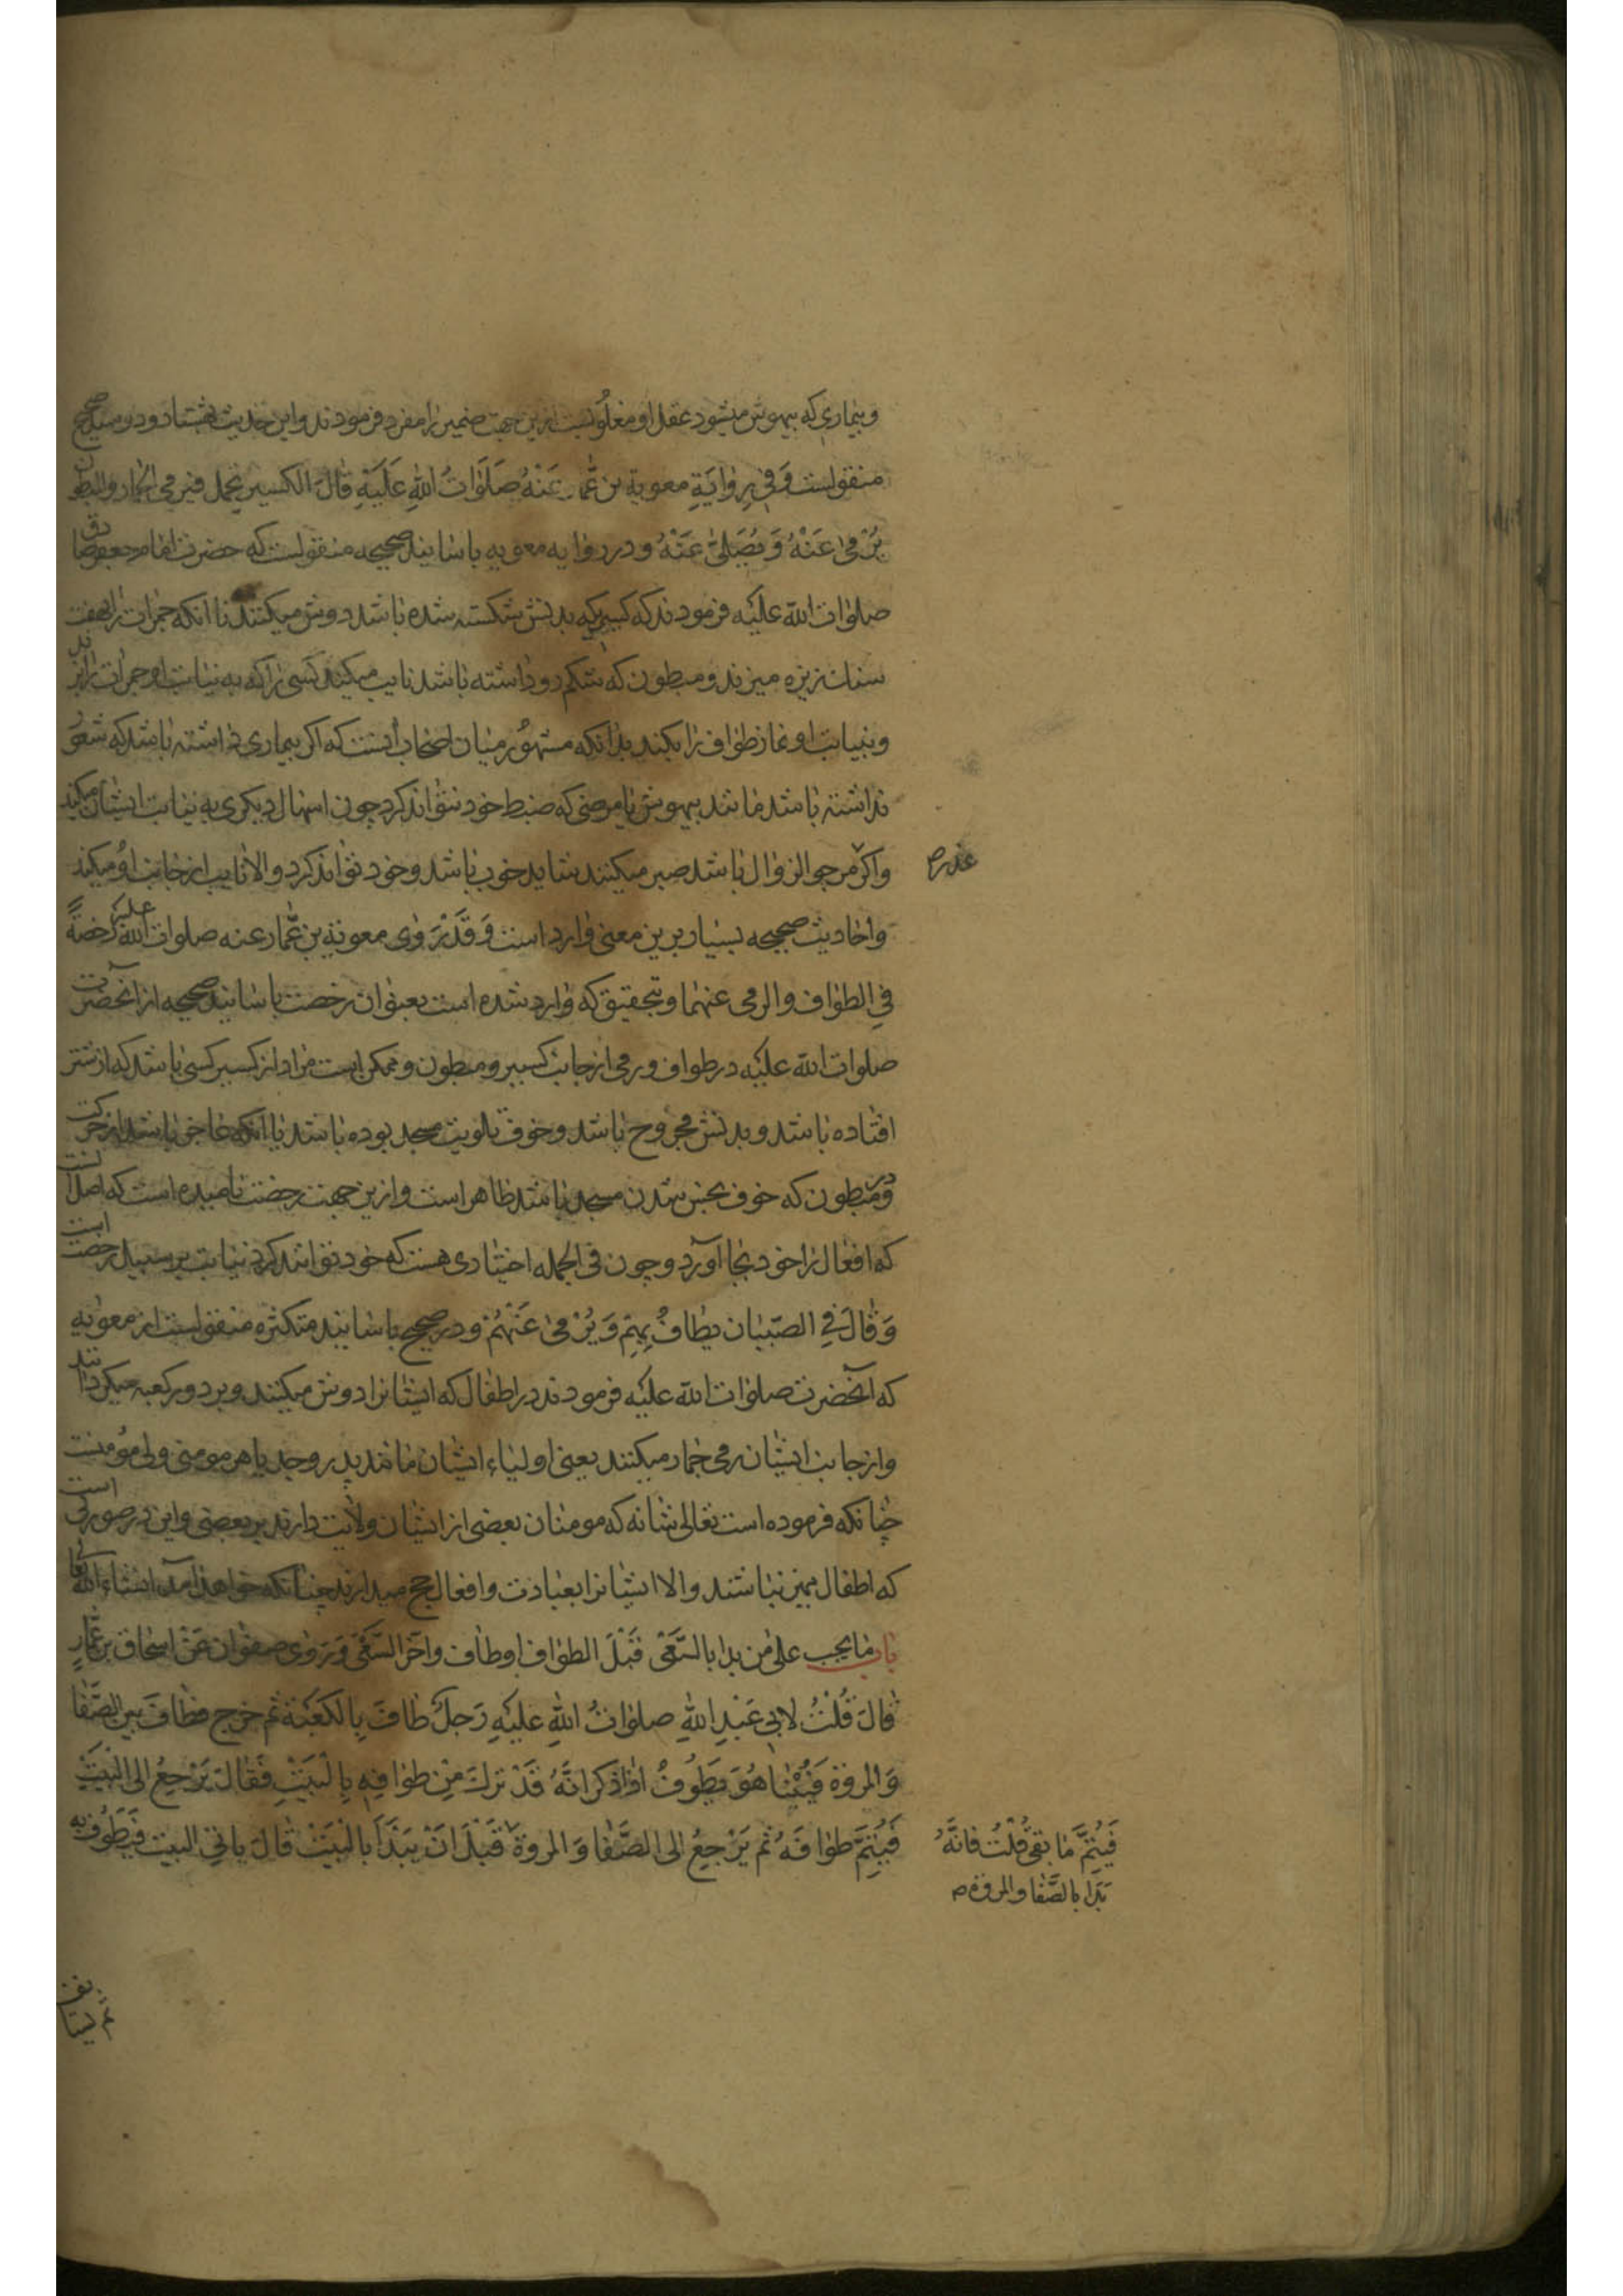 وبیماری که بیهوش میشود عقل او مغلوبست ازین جهت ضمیر را مفرد فرمودند و این حدیث هشتاد و دو سند صحیح
منقولست وَفِی رِوٰایَةِ معویة بن عَمّار عَنْهُ صَلَوَاتُ اللهِ عَلَیْهِ قٰالَ الکسیر یُحمل فیرمی الجمار والمبطون
یُرْمیٰ عَنْهُ وَ یُصَلّیٰ عَنْهُ و در روٰایه معویه باسانید صحیحه منقولست که حضرت امام جعفر صادق
صلوات الله علیه فرمودند که کسیریکه بدنش شکسته شده باشد دوش میکنند تا آنکه جمرات را بهفت
سنك ریزه میزند و مبطون که شکم رو داشته باشد نایب میکیند کسی را که به نیابت او جمرات را بزند
و بنیابت او نماز طواف را بکند بدانکه مشهور میان اصحاب آنست که اکر بیماری داشته باشد که شعور
نداشته باشد مانند بیهوش یا مرضی که ضبط خود نتواند کرد چون اسهال دیکری به نیابت ایشان میکند
و اکر مرجو الزوال باشد صبر میکنند شاید خوب باشد و خود تواند کرد و الا نایب از جانب او میکند
و احادیث صحیحه بسیار برین معنی وارد است وَ قَدْ رَوٰی معویة بن عَمّار عنه صلوات الله علیه رُخصةً
فِی الطواف والرمی عنهما و بتحقیق که وارد شده است بعنوان رخصت باسانید صحیحه از آنحضرت
صلوات الله علیه در طواف و رمی از جانب کسیر و مبطون و ممکن است مراد از کسیر کسی باشد که از شتر
افتاده باشد و بدنش مجروح باشد و خوف تلویث مسجد بوده باشد یا آنکه عاجز باشد از حرکت
و در مبطون که خوف نجس شدن مسجد باشد ظاهر است و ازین جهت رخصت نامیده است که اصل آنست
که افعال را خود بجا آورد و چون فی الجمله اختیاری هست که خود تواند کرد نیابت بر سبیل رخصت است
وَ قٰالَ فِی الصّبیان یُطٰافُ بِهِم وَ یُرْمیٰ عَنْهُمْ و در صحیح باسانید متکثره منقولست از معویه
که آنحضرت صلوات الله علیه فرمودند در اطفال که ایشانرا دوش میکنند و بر دور کعبه میکردانند
و از جانب ایشان رمی جمار میکنند یعنی اولیاء ایشان مانند پدر و جد یا هر مومنی ولی مومنست
چنانکه فرموده است تعالی شانه که مومنان بعضی از ایشان ولایت دارند بر بعضی و این در صورتی است
که اطفال ممیز نباشند و الا ایشانرا بعبادت و افعال حج میدارند چنانکه خواهد آمد انشاء الله تعالی
باب مٰا یجب علیٰ من بدا بالسَّعْی قَبْلَ الطواف او طاف و اخّر السَّعْیَ وَ رَوٰی صفوٰان عَنْ اسحاق بن عَمّارٍ
قٰالَ قُلْتُ لابی عَبْدِ اللهِ صلوٰاتُ اللهِ علیْهِ رَجلٌ طٰافَ بِالکَعْبَة ثم خرج فطٰافَ بین الصَّفٰا
وَ المروة فَبَیْنٰا هُوَ یَطُوفُ اذا ذکر انَّهُ قَدْ ترك مِنْ طوٰافِهِ بِالْبَیْتِ فَقٰالَ یَرْجِعُ الی الْبَیْتِ
فَیُتِمَّ طوٰافَهُ ثم یَرْجِعُ الی الصَّفٰا وَ المروة قَبْلَ انْ یَبْدَأَ بالْبَیْتْ قٰالَ یاتی البیت فَیَطُوفُ به
عذر ص
فَیُتِمَّ مٰا بقیَ قُلْتُ فانَّهُ
بَدَا بالصَّفٰا والمروة ص